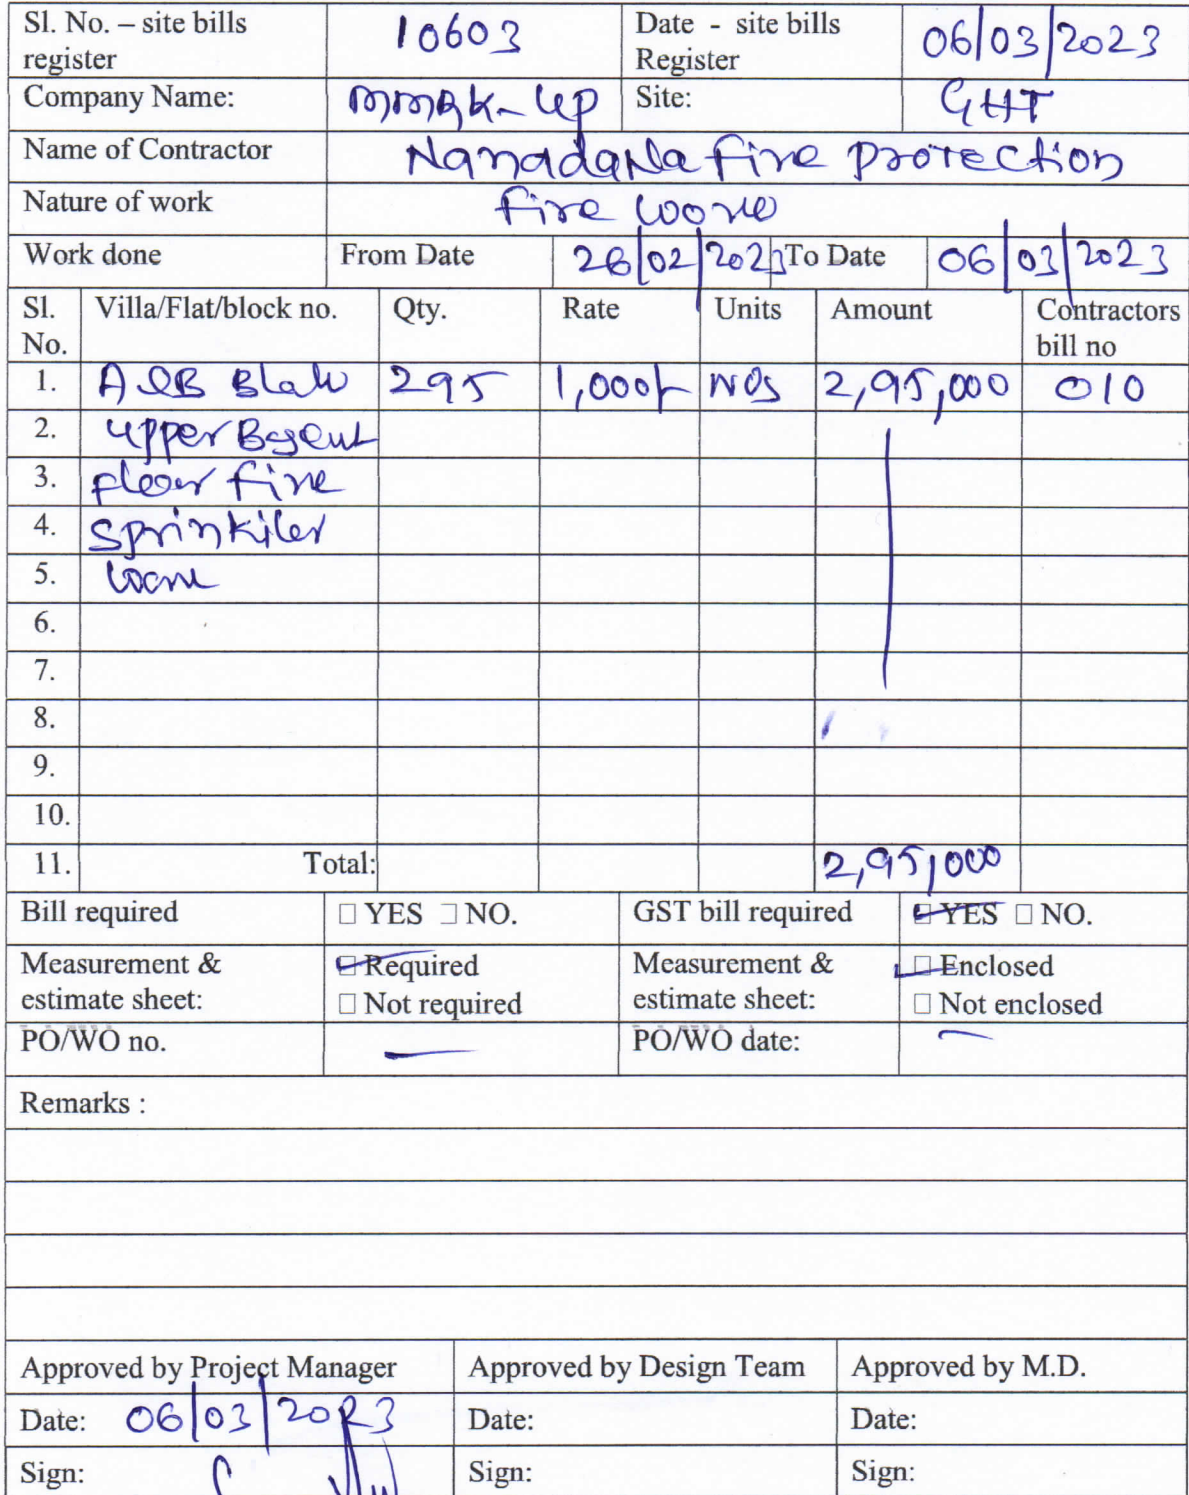 Sl. No. – site bills register 10603 Date - site bills Register 06/03/2023
Company Name: Site: GHT
Name of Contractor Fire Protection
Nature of work Fire
Work done From Date 26/02/2023 To Date 06/03/2023
Sl. No. Villa/Flat/block no. Qty. Rate Units Amount Contractors bill no
1. 295 1,000/- NOs 2,95,000 010
2. Upper
3. Fire
4. Sprinkiler
5.
6.
7.
8.
9.
10.
11. Total: 2,95,000
Bill required □ YES □ NO. GST bill required □ YES □ NO.
Measurement & estimate sheet: □ Required □ Not required Measurement & estimate sheet: □ Enclosed □ Not enclosed
PO/WO no. — PO/WO date: —
Remarks :
Approved by Project Manager Approved by Design Team Approved by M.D.
Date: 06/03/2023 Date: Date:
Sign: Sign: Sign: